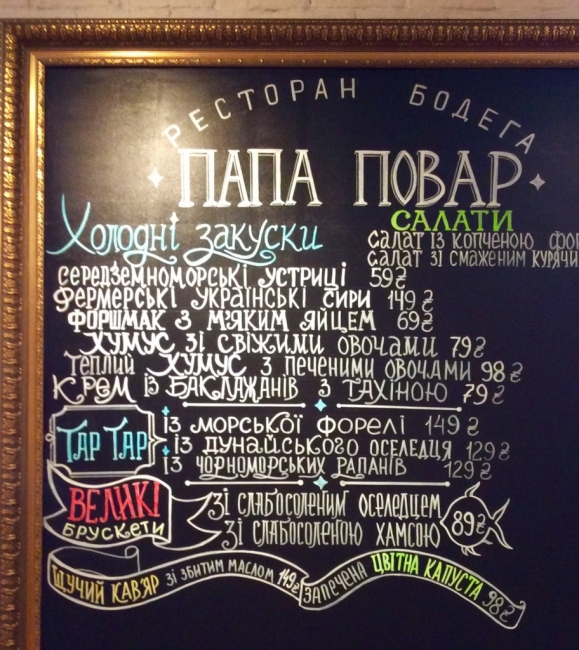 РЕСТОРАН БОДЕГА
ПАПА ПОВАР
Холодні закуски
СЕРЕДЗЕМНОМОРСЬКІ УСТРИЦІ 59₴
ФЕРМЕРСЬКІ УКРАЇНСЬКІ СИРИ 149₴
ФОРШМАК З М'ЯКИМ ЯЙЦЕМ 69₴
ХУМУС ЗІ СВІЖИМИ ОВОЧАМИ 79₴
ТЕПЛИЙ ХУМУС З ПЕЧЕНИМИ ОВОЧАМИ 98₴
КРЕМ ІЗ БАКЛАЖАНІВ З ТАХІНОЮ 79₴
ТАР ТАР
ІЗ МОРСЬКОЇ ФОРЕЛІ 149₴
ІЗ ДУНАЙСЬКОГО ОСЕЛЕДЦЯ 129₴
ІЗ ЧОРНОМОРСЬКИХ РАПАНІВ 129₴
ВЕЛИКІ
БРУСКЕТИ
ЗІ СЛАБОСОЛЕНИМ ОСЕЛЕДЦЕМ
ЗІ СЛАБОСОЛЕНОЮ ХАМСОЮ
89₴
ЩУЧИЙ КАВ'ЯР ЗІ ЗБИТИМ МАСЛОМ 149₴
ЗАПЕЧЕНА ЦВІТНА КАПУСТА 98₴
САЛАТИ
САЛАТ ІЗ КОПЧЕНОЮ
САЛАТ ЗІ СМАЖЕНИМ